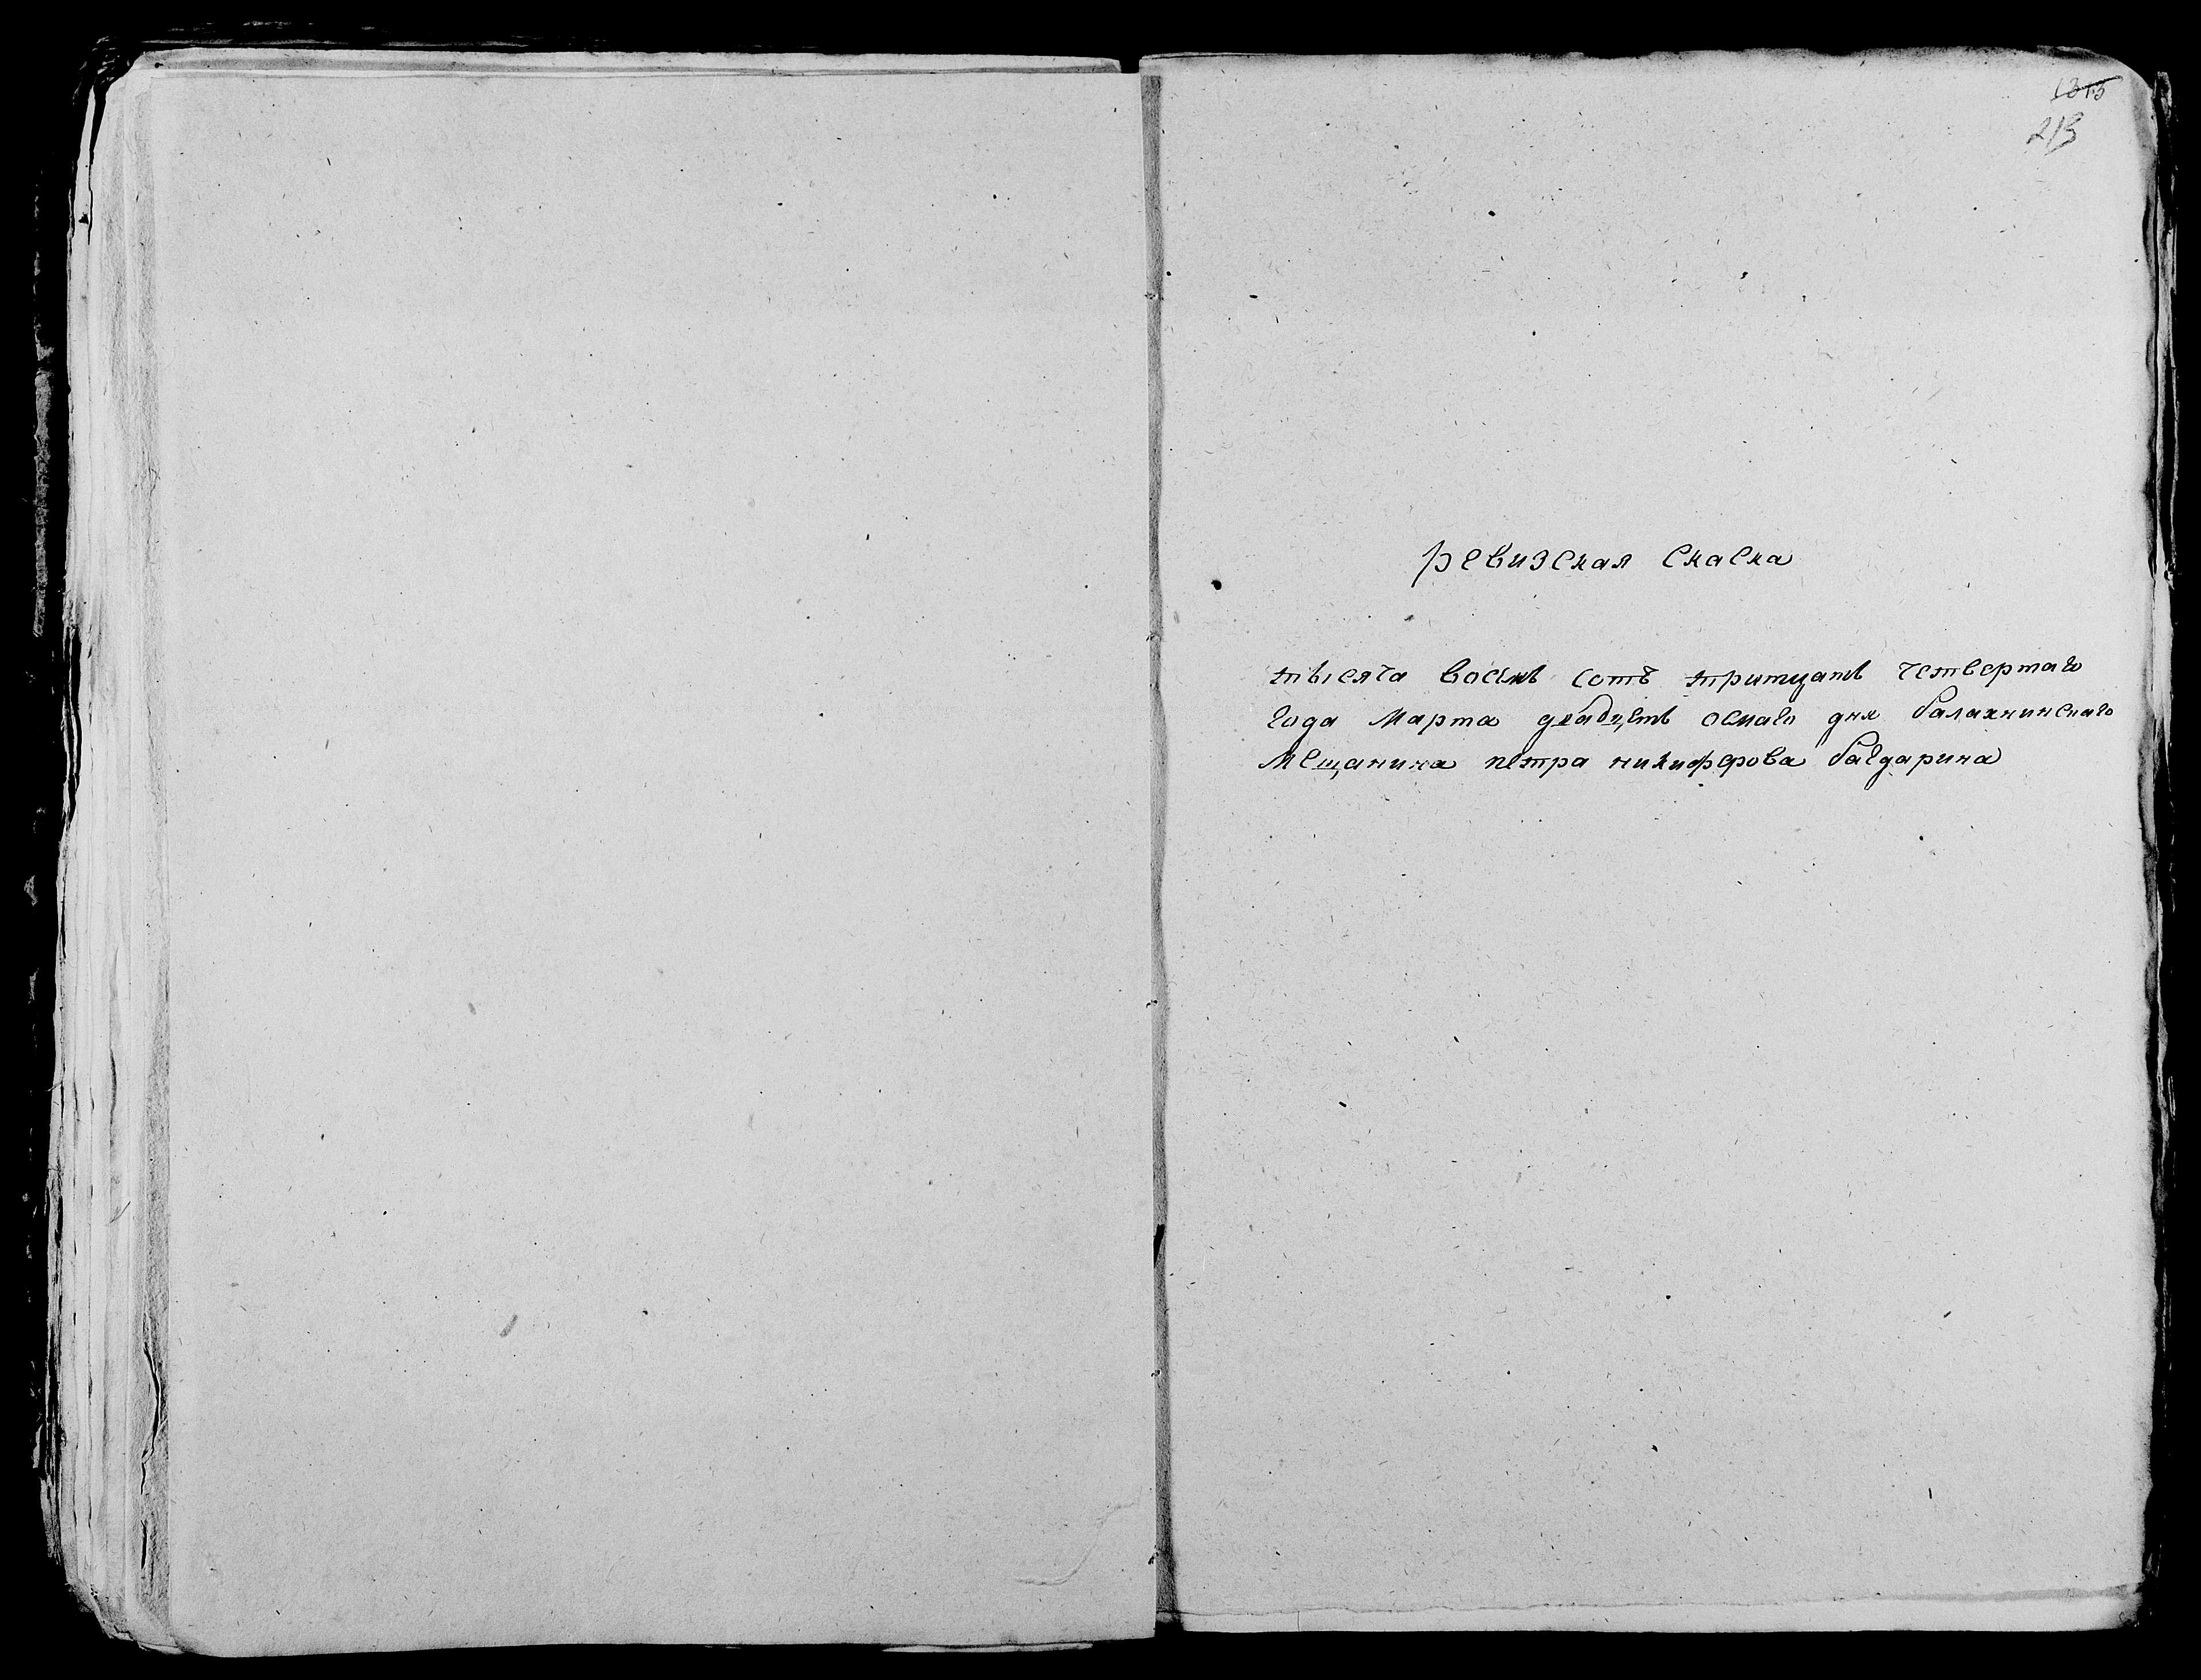 213
ревизская скаска
тысяча восемь сотъ тритцать четвертаго
года марта двадцеть осмаго дня балахнинскаго
мещанина петра никифорова